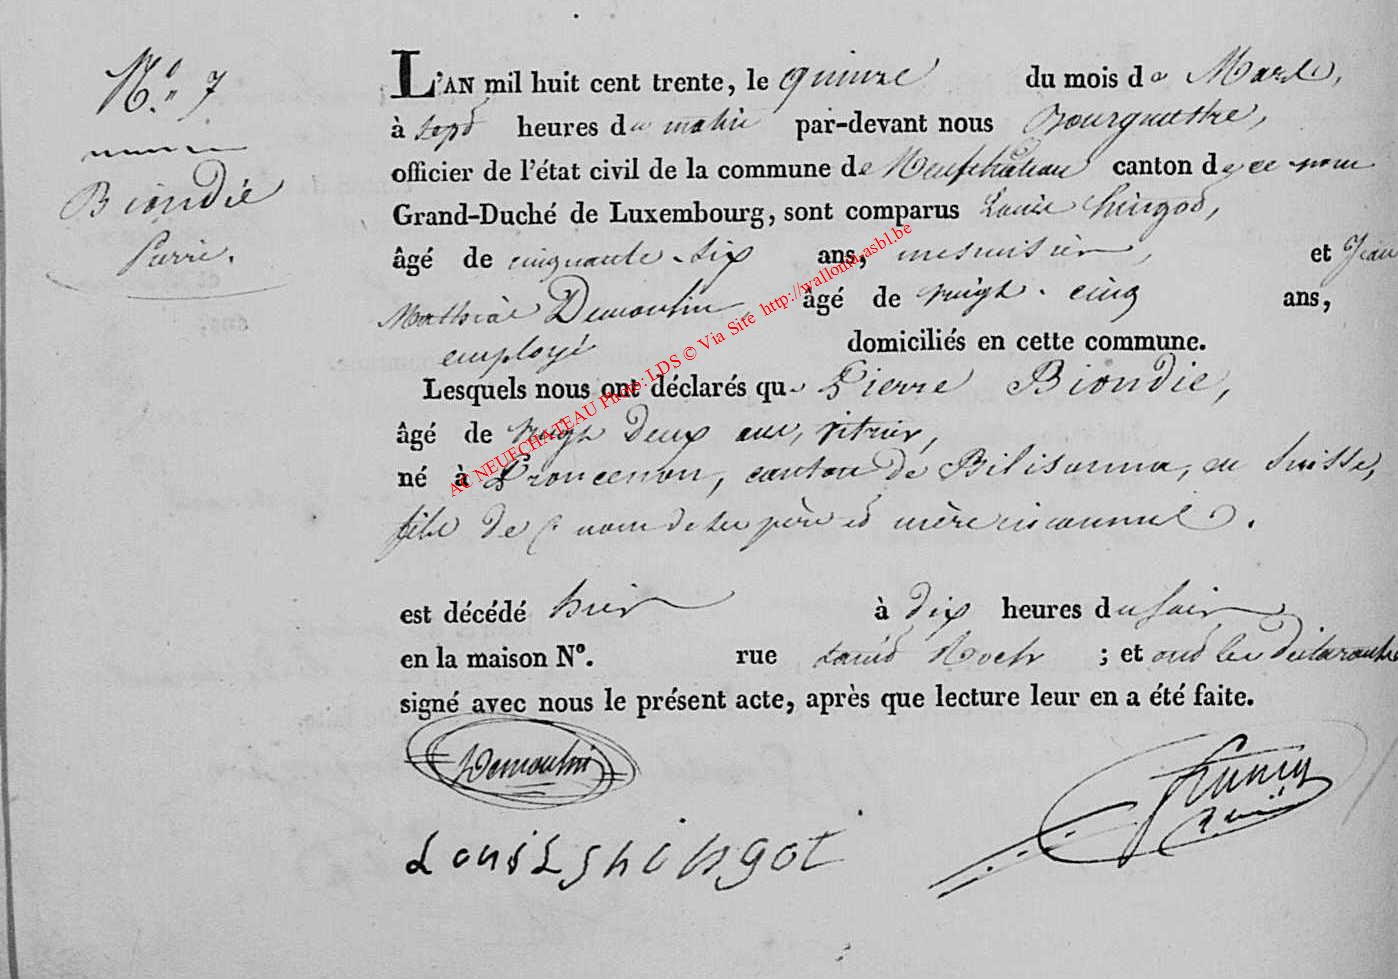 N.o 7
Biondié
Pierre.
L'AN mil huit cent trente, le quinze du mois de Mars,
à sept heures du matin par-devant nous Bourgmestre,
officier de l'état civil de la commune de Neufchateau canton de ce nom
Grand-Duché de Luxembourg, sont comparus Louis
âgé de cinquante-six ans, menuisier, et Jean
Mathias Demoulin, âgé de vingt-cinq ans,
employé domiciliés en cette commune.
Lesquels nous ont déclarés que Pierre Biondie,
âgé de vingt deux ans, vitrier,
né à canton de en Suisse,
fils de nom de ses père et mère inconnus.
est décédé hier à dix heures du soir
en la maison N°. rue Saint Roch ; et ont les déclarants
signé avec nous le présent acte, après que lecture leur en a été faite.
Demoulin
Louis
AC NEUECHATEAU Photo: LDS © Via Site http://wallonia.asbl.be